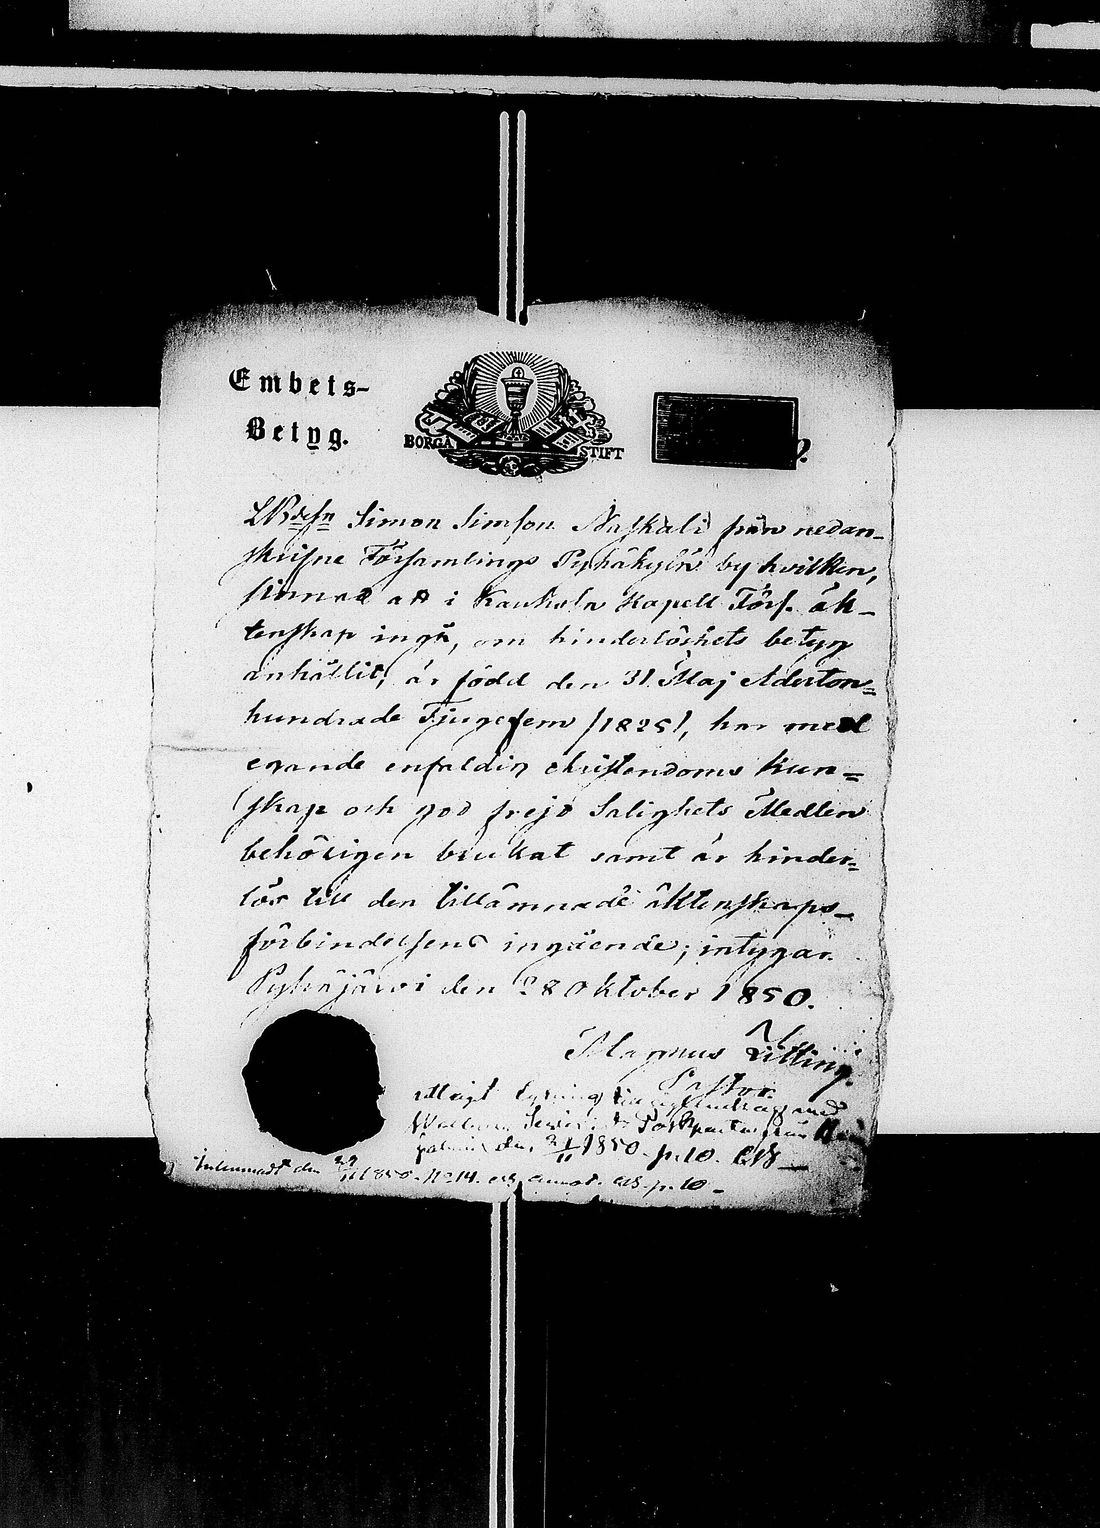 Embets-
Betyg.
BORGÅ STIFT
LBdesn Simon Simson Naskali från nedan-
skrifne Församlings Pyhäkylä by hvilken,
sinnad att i Kaukola Kapell Förs. äk-
tenskap ingå, om hinderlöshets betyg
anhållit, är född den 31 Maj Aderton=
hundrade Tjugefem /1825/, har med
egande enfaldig christendoms kun=
skap och god frejd Salighets Medlen
behörigen brukat samt är hinder=
lös till den tillämnade äktenskaps-
förbindelsens ingående; intygar
Pyhäjärvi den 28 Oktober 1850.
Magnus
Pastor
1850. p. 10.
den 29/11 1850. N:o 14. p. 10